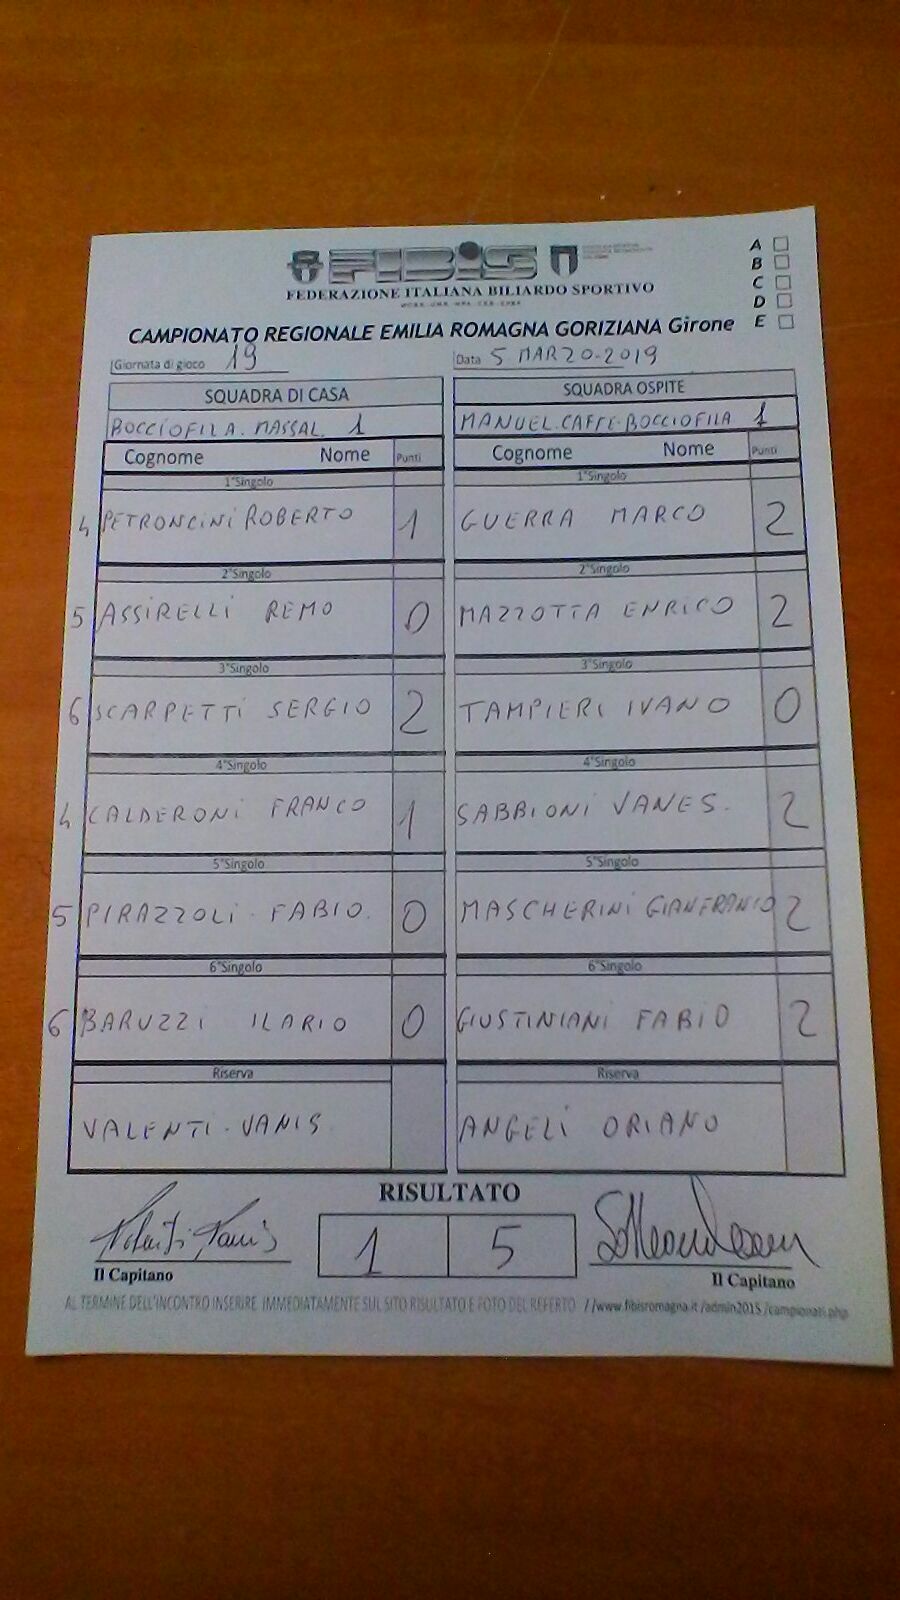 FIBiS
FEDERAZIONE ITALIANA BILIARDO SPORTIVO
A
B
C
D
E
CAMPIONATO REGIONALE EMILIA ROMAGNA GORIZIANA Girone
Giornata di gioco 19 Data 5 MARZO-2019
SQUADRA DI CASA SQUADRA OSPITE
BOCCIOFILA. MASSAL. 1 MANUEL.CAFFE-BOCCIOFILA 1
Cognome Nome Punti Cognome Nome Punti
1°Singolo 1°Singolo
4 PETRONCINI ROBERTO 1 GUERRA MARCO 2
2°Singolo 2°Singolo
5 ASSIRELLI REMO 0 MAZZOTTA ENRICO 2
3°Singolo 3°Singolo
6 SCARPETTI SERGIO 2 TAMPIERI IVANO 0
4°Singolo 4°Singolo
4 CALDERONI FRANCO 1 SABBIONI VANES. 2
5°Singolo 5°Singolo
5 PIRAZZOLI. FABIO. 0 MASCHERINI GIANFRANCO 2
6°Singolo 6°Singolo
6 BARUZZI ILARIO 0 GIUSTINIANI FABIO 2
Riserva Riserva
VALENTI. VANIS ANGELI ORIANO
RISULTATO
1 5
Il Capitano Il Capitano
AL TERMINE DELL'INCONTRO INSERIRE IMMEDIATAMENTE SUL SITO RISULTATO E FOTO DEL REFERTO //www.fibisromagna.it/admin2015/campionati.php